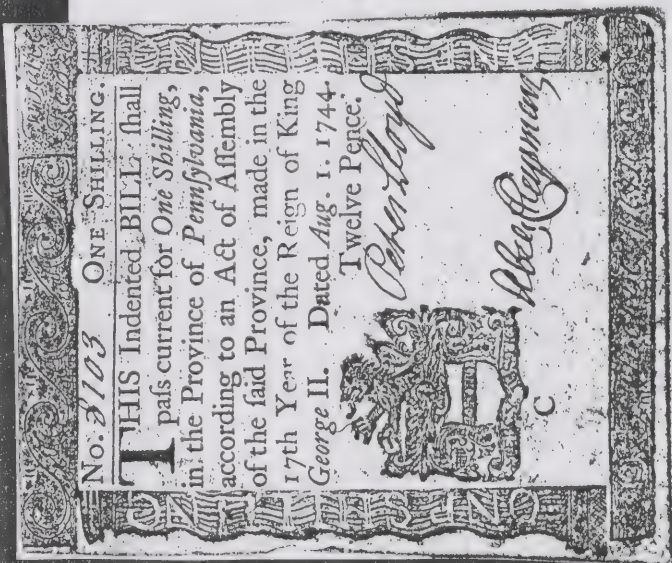 ONE SHILLING
No. 3103 ONE SHILLING.
THIS Indented BILL ſhall
paſs current for One Shilling,
in the Province of Pennſylvania,
according to an Act of Aſſembly
of the ſaid Province, made in the
17th Year of the Reign of King
George II. Dated Aug. 1. 1744.
Twelve Pence.
Peter Lloyd
C
ONE SHILLING